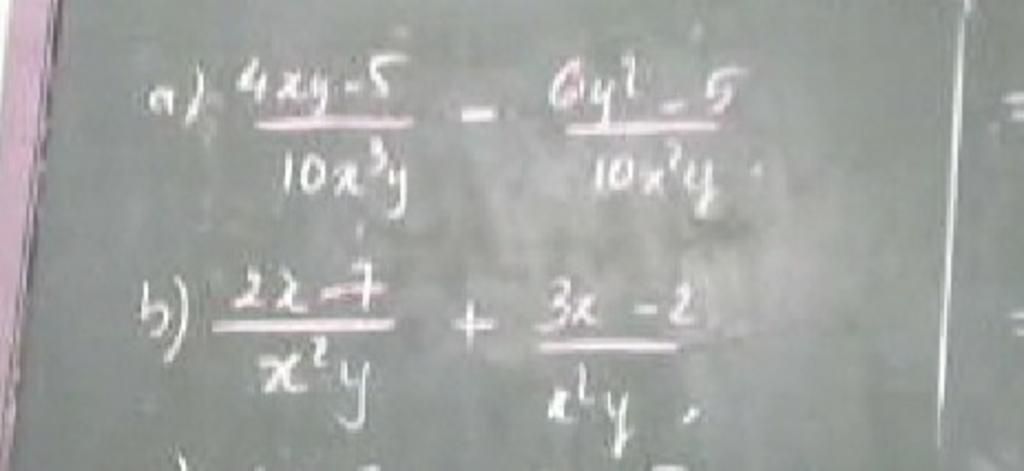 a) 4xy-5 / 10x³y - 6y² - 5 / 10x²y
b) 2x-7 / x²y + 3x - 2 / x²y .